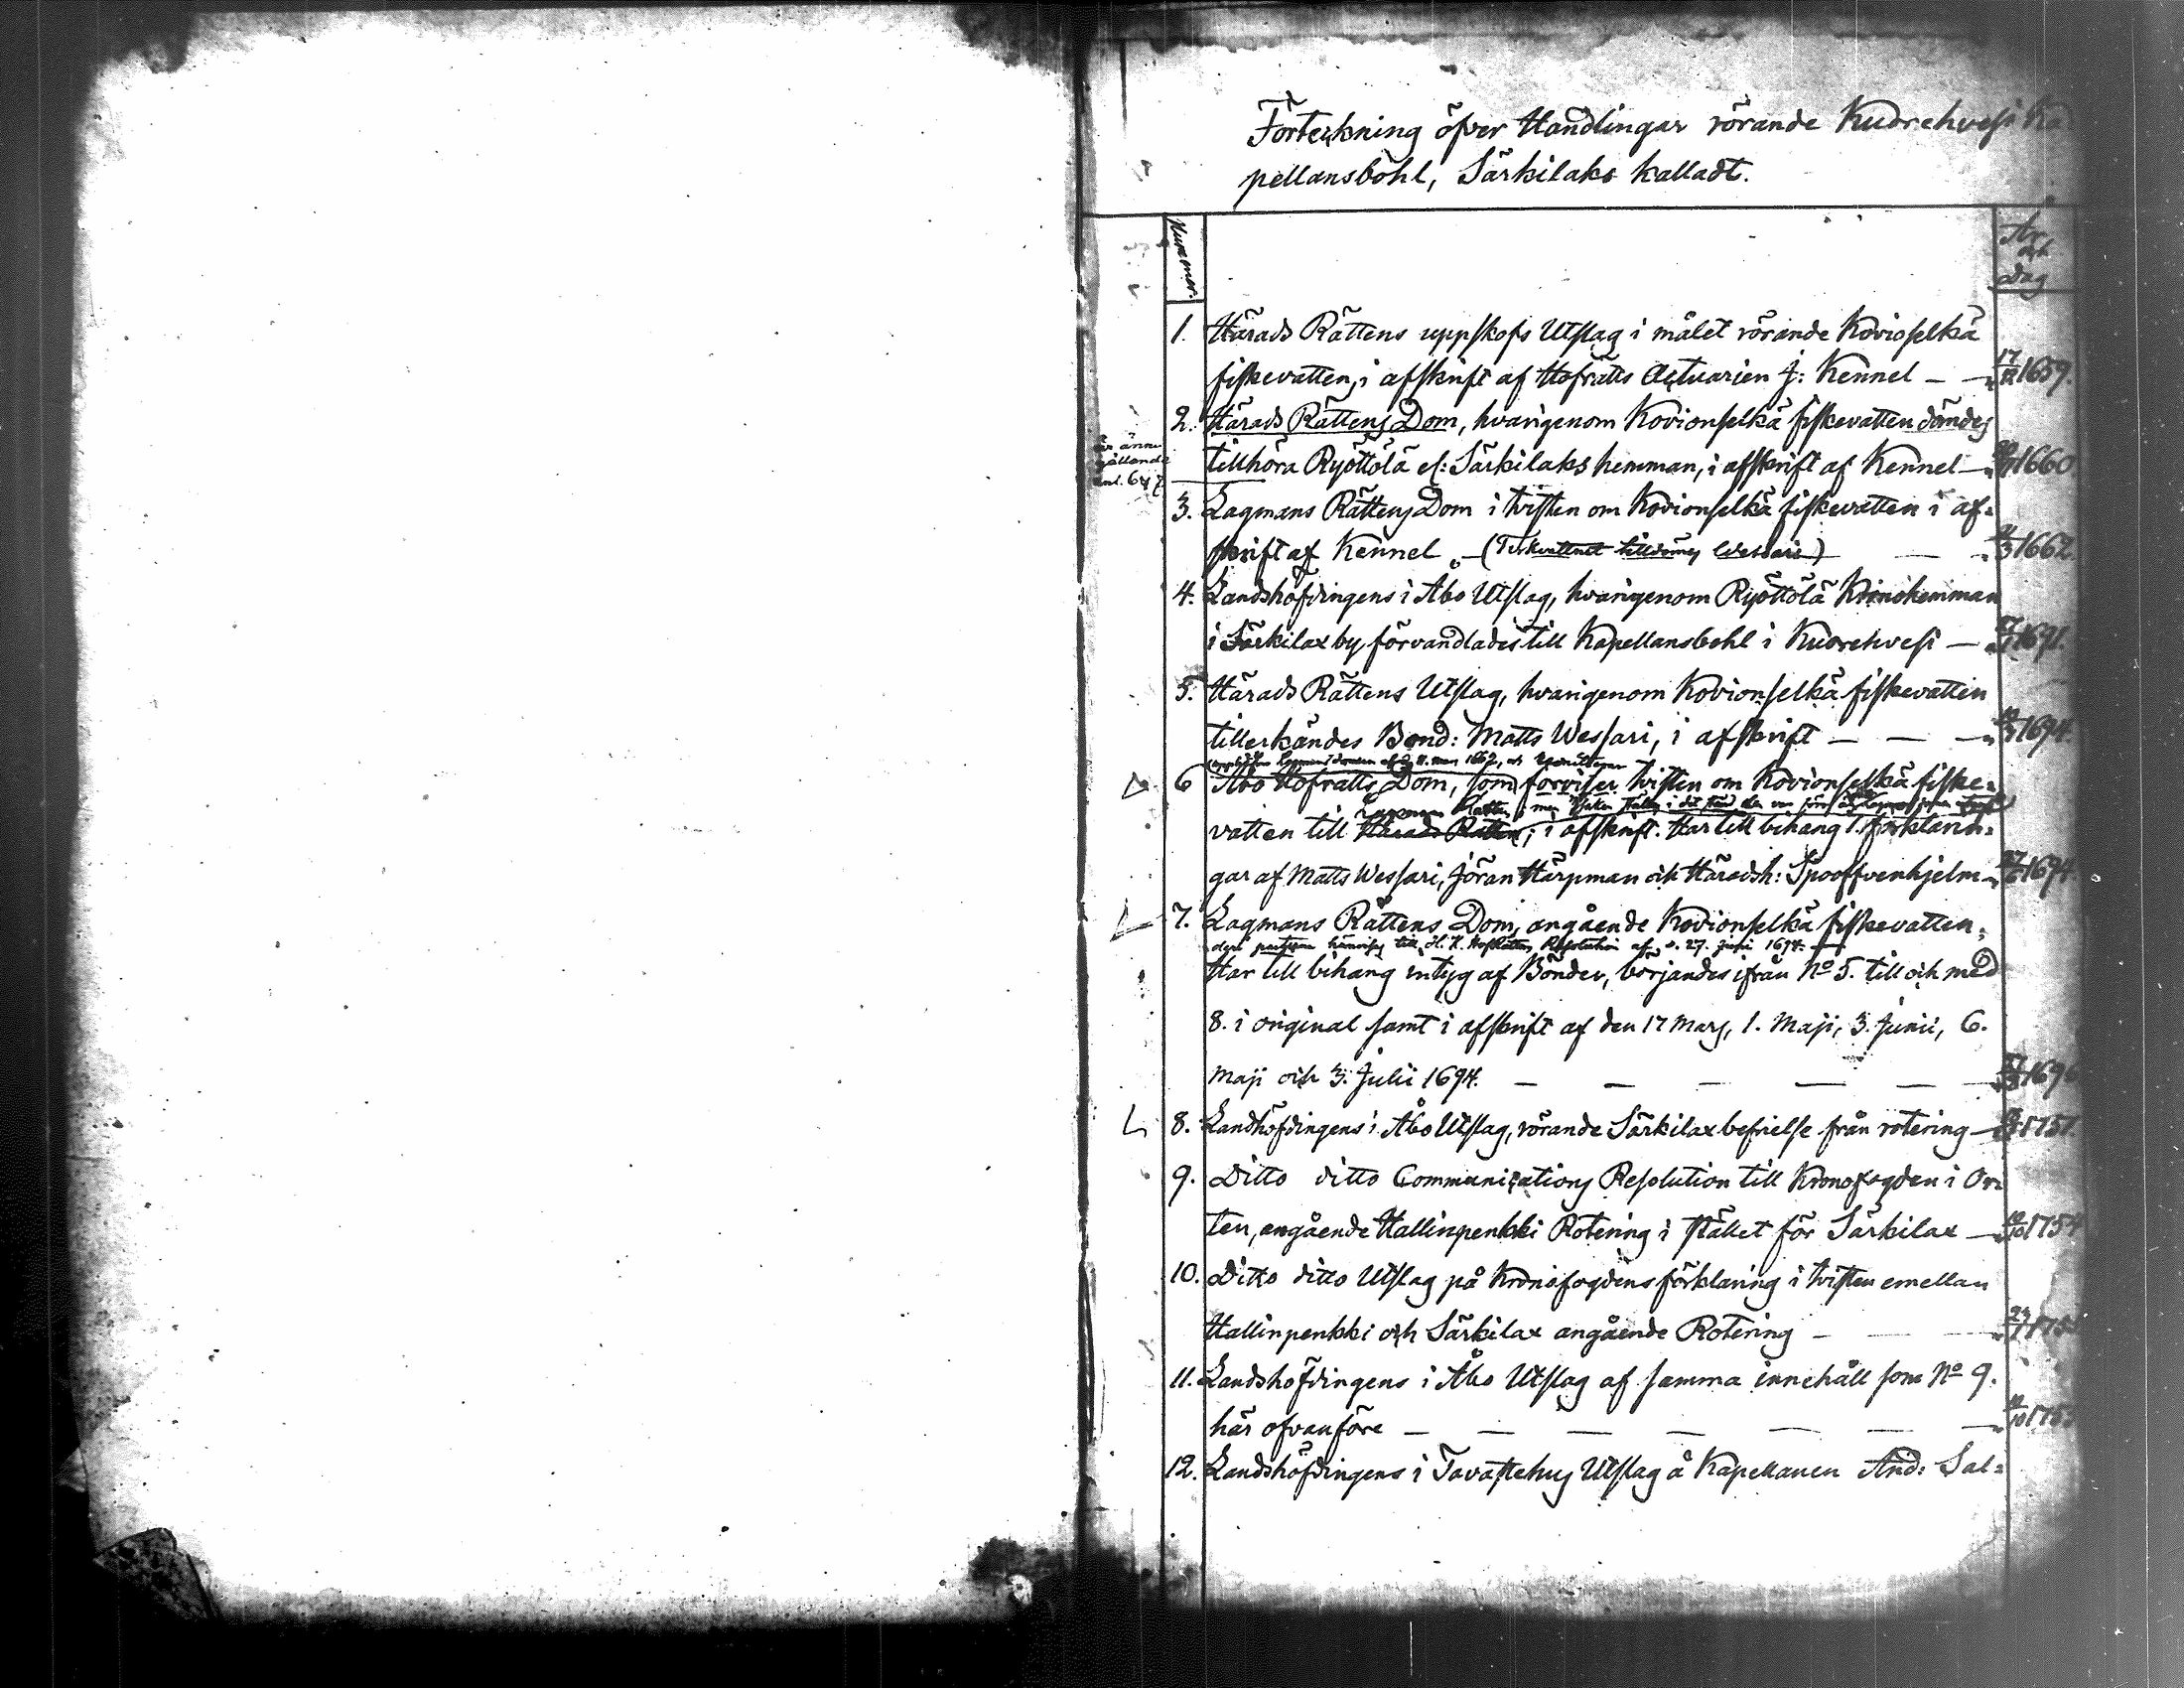 Förteckning öfver Handlingar rörande Kuorehvesi Ka
pellansbohl, Särkilaks kalladt.
Nummer.
År
och
dag
1. Härads Rättens uppskofs Utslag i målet rörande Kovioselkä
fiskevatten, i afskrift af Hofrätts Actuarien J: Kennel — — 17/12 1659.
2. Härads Rättens Dom, hvarigenom Kovionselkä fiskevatten dömdes
är ännu
gällande
tillhöra Ryöttölä el: Särkilaks hemman, i afskrift af Kennel — 1660
3. Lagmans Rättens Dom i tvisten om Kovionselkä fiskevatten i af=
skrift af Kennel — (Fiskvattnet tilldömes Wessari) — 1662.
4. Landshöfdingens i Åbo Utslag, hvarigenom Ryöttölä Kronohemman
i Särkilax by förvandlades till Kapellansbohl i Kuorehvesi — 1691.
5. Härads Rättens Utslag, hvarigenom Kovionselkä fiskevatten
tillerkändes Bond: Matts Wessari, i afskrift — — — 1694.
upphäfver Lagmansdomen af d. 11. mars 1662, och
6 Åbo Hofrätts Dom, som förviser tvisten om Kovionselkä fiske=
Lagmans Rätten, men saken ställes i det stånd den var före
vatten till Härads Rätten; i afskrift. Har till bihang 1. förklarin=
gar af Matts Wessari, Jöran Härpman och Häradsh: Spooffvenhjelm — 1694
7. Lagmans Rättens Dom, angående Kovionselkä fiskevatten,
der parterne hänvises till K. H. Hofrättens Resolution af d. 27. juni 1694. —
Har till bihang intyg af Bönder, börjandes ifrån No 5. till och med
8. i original samt i afskrift af den 17 Mars, 1. Maji, 3. Junii, 6.
Maji och 3. Julii 1694. — — — — — 1696
8. Landhöfdingens i Åbo Utslag, rörande Särkilax befrielse från rotering — 1751.
9. Ditto ditto Communications Resolution till Kronofogden i Ori
ten, angående Hallinpenkki Rotering i stället för Särkilax — 1754
10. Ditto ditto Utslag på Kronofogdens förklaring i tvisten emellan
Hallinpenkki och Särkilax angående Rotering —
11. Landshöfdingens i Åbo Utslag af samma innehåll som No 9.
här ofvanföre — — — — — — —
12. Landshöfdingens i Tavastehus Utslag å Kapellanen And: Sal=